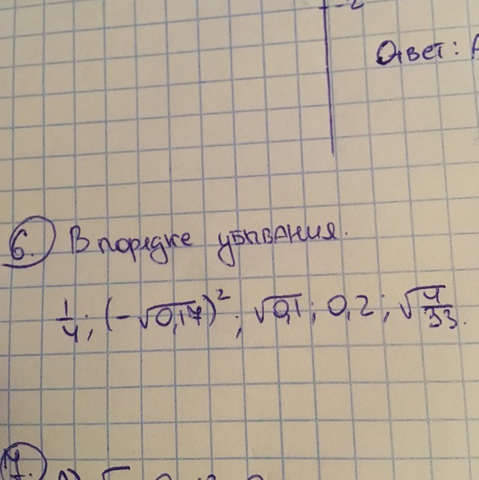 -2
Ответ:
6. В порядке убывания.
1/4; (-√0,17)²; √0,1; 0,2; √4/33.
7.